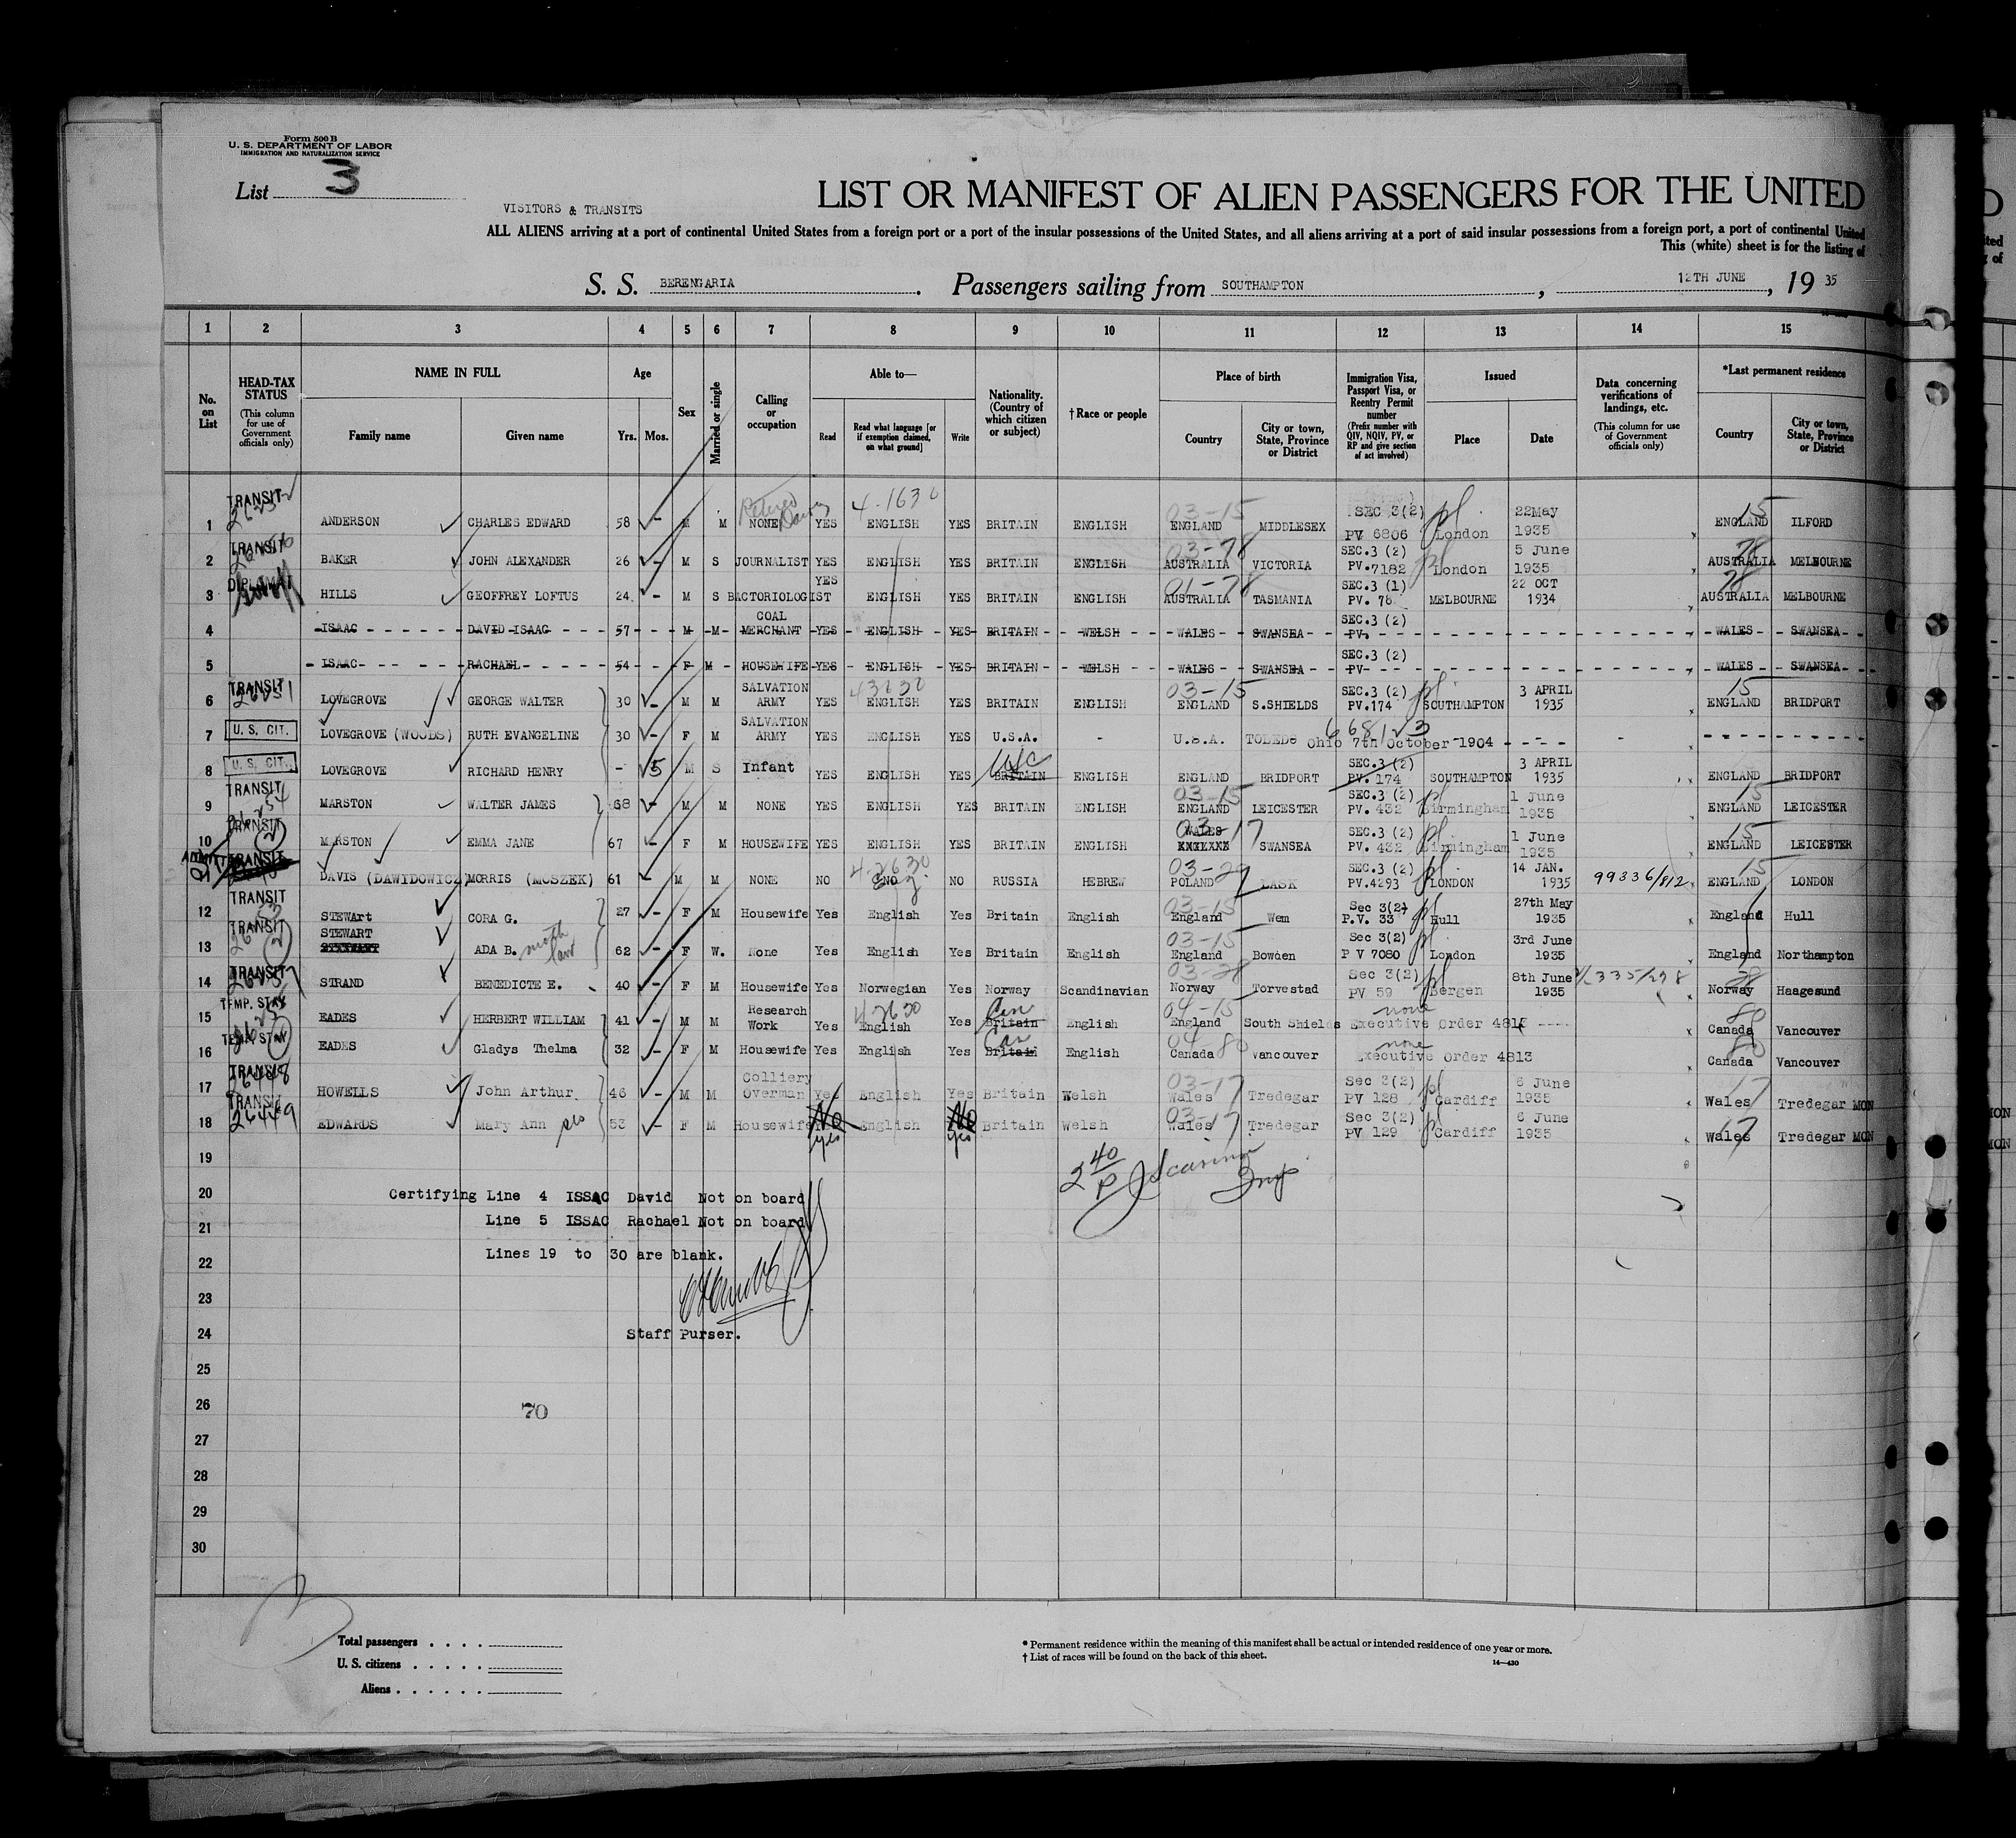 Form 500 B
U. S. DEPARTMENT OF LABOR
IMMIGRATION AND NATURALIZATION SERVICE
List 3
VISITORS & TRANSITS
LIST OR MANIFEST OF ALIEN PASSENGERS FOR THE UNITED
ALL ALIENS arriving at a port of continental United States from a foreign port or a port of the insular possessions of the United States, and all aliens arriving at a port of said insular possessions from a foreign port, a port of continental United
This (white) sheet is for the listing of
S. S. BERENGARIA. Passengers sailing from SOUTHAMPTON, 12TH JUNE, 19 35
1 2 3 4 5 6 7 8 9 10 11 12 13 14 15
No. on List
HEAD-TAX STATUS (This column for use of Government officials only)
NAME IN FULL Family name Given name
Age Yrs. Mos.
Sex
Married or single
Calling or occupation
Able to— Read Read what language [or if exemption claimed, on what ground] Write
Nationality. (Country of which citizen or subject)
†Race or people
Place of birth Country City or town, State, Province or District
Immigration Visa, Passport Visa, or Reentry Permit number (Prefix number with QIV, NQIV, PV, or RP and give section of act involved)
Issued Place Date
Data concerning verifications of landings, etc. (This column for use of Government officials only)
*Last permanent residence Country City or town, State, Province or District
1 TRANSIT ANDERSON CHARLES EDWARD 58 - M M NONE Retired YES ENGLISH 4-163 YES BRITAIN ENGLISH 03-15 ENGLAND MIDDLESEX SEC 3(2) PV 6806 London 22May 1935 ENGLAND 15 ILFORD
2 TRANSIT BAKER JOHN ALEXANDER 26 - M S JOURNALIST YES ENGLISH YES BRITAIN ENGLISH 03-78 AUSTRALIA VICTORIA SEC.3 (2) PV.7182 London 5 June 1935 78 AUSTRALIA MELBOURNE
3 DIPLOMAT HILLS GEOFFREY LOFTUS 24 - M S BACTORIOLOGIST YES ENGLISH YES BRITAIN ENGLISH 01-78 AUSTRALIA TASMANIA SEC.3 (1) PV. 76 MELBOURNE 22 OCT 1934 78 AUSTRALIA MELBOURNE
4 ISAAC DAVID ISAAC 57 - M M COAL MERCHANT YES ENGLISH YES BRITAIN WELSH WALES SWANSEA SEC.3 (2) PV- WALES SWANSEA
5 ISAAC RACHAEL 54 - F M HOUSEWIFE YES ENGLISH YES BRITAIN WELSH WALES SWANSEA SEC.3 (2) PV- WALES SWANSEA
6 TRANSIT LOVEGROVE GEORGE WALTER 30 - M M SALVATION ARMY YES ENGLISH YES BRITAIN ENGLISH 03-15 ENGLAND S.SHIELDS SEC.3 (2) PV.174 SOUTHAMPTON 3 APRIL 1935 15 ENGLAND BRIDPORT
7 U. S. CIT. LOVEGROVE (WOODS) RUTH EVANGELINE 30 - F M SALVATION ARMY YES ENGLISH YES U.S.A. - U.S.A. TOLEDO Ohio 7th October 1904 - - - -
8 U. S. CIT. LOVEGROVE RICHARD HENRY - 5 M S Infant YES ENGLISH YES USC BRITAIN ENGLISH ENGLAND BRIDPORT SEC.3 (2) PV.174 SOUTHAMPTON 3 APRIL 1935 ENGLAND BRIDPORT
9 TRANSIT MARSTON WALTER JAMES 68 - M M NONE YES ENGLISH YES BRITAIN ENGLISH 03-15 ENGLAND LEICESTER SEC.3 (2) PV. 432 Birmingham 1 June 1935 15 ENGLAND LEICESTER
10 TRANSIT MARSTON EMMA JANE 67 - F M HOUSEWIFE YES ENGLISH YES BRITAIN ENGLISH 03-17 WALES SWANSEA SEC.3 (2) PV. 432 Birmingham 1 June 1935 15 ENGLAND LEICESTER
TRANSIT DAVIS (DAWIDOWICZ) MORRIS (MOSZEK) 61 - M M NONE NO NO NO RUSSIA HEBREW POLAND LASK SEC.3 (2) PV.4293 LONDON 14 JAN. 1935 99836/812 15 ENGLAND LONDON
12 TRANSIT STEWArt CORA G. 27 - F M Housewife Yes English Yes Britain English 03-15 England Wem Sec 3(2) P.V. 33 Hull 27th May 1935 England Hull
13 TRANSIT STEWART ADA B. 62 - F W. None Yes English Yes Britain English 03-15 England Bowden Sec 3(2) P V 7080 London 3rd June 1935 England Northampton
14 TRANSIT STRAND BENEDICTE E. 40 - F M Housewife Yes Norwegian Yes Norway Scandinavian 03-28 Norway Torvestad Sec 3(2) PV 59 Bergen 8th June 1935 28 Norway Haagesund
15 TEMP. STAY EADES HERBERT WILLIAM 41 - M M Research Work Yes English Yes Can Britain English 04-15 England South Shields none Executive Order 4813 ---- 80 Canada Vancouver
16 TEMP. STAY EADES Gladys Thelma 32 - F M Housewife Yes English Yes Can Britain English 04-80 Canada Vancouver none Executive Order 4813 80 Canada Vancouver
17 TRANSIT 26448 HOWELLS John Arthur 46 - M M Colliery Overman Yes English Yes Britain Welsh 03-17 Wales Tredegar Sec 3(2) PV 128 Cardiff 6 June 1935 17 Wales Tredegar MON
18 TRANSIT 26449 EDWARDS Mary Ann sis 53 - F M Housewife No yes English No yes Britain Welsh 03-17 Wales Tredegar Sec 3(2) PV 129 Cardiff 6 June 1935 17 Wales Tredegar MON
19
20 Certifying Line 4 ISSAC David Not on board
21 Line 5 ISSAC Rachael Not on board
22 Lines 19 to 30 are blank.
23
24 Staff Purser.
25
26 70
27
28
29
30
Total passengers . . . .
U. S. citizens . . . . .
Aliens . . . . . .
* Permanent residence within the meaning of this manifest shall be actual or intended residence of one year or more.
† List of races will be found on the back of this sheet.
14—430